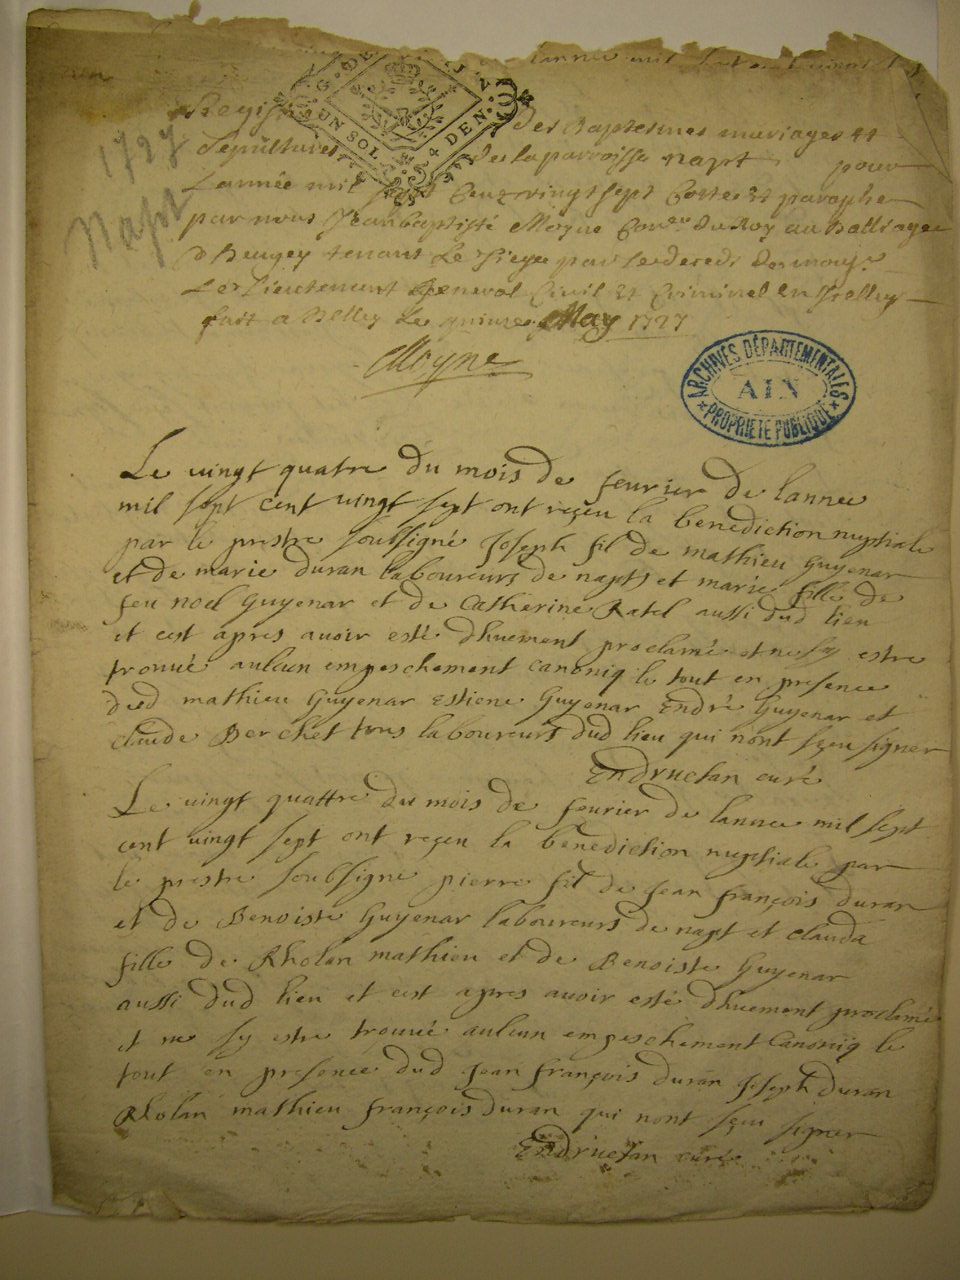 lannee mil sept
G. DE
UN SOL 4 DEN.
1727
Napt
Regist des Baptesmes mariages et
sepultures de la parroisse napt pour
Lannée mil sept Cent vingt sept Cottes et paraphe
par nous Jean baptiste Moyne Coner du Roy au Balliage
de Beugey tenant Le siege par le deceds
Lieutenant General Civil et Criminel en
fait a Belley Le quinze May 1727
Moyne
ARCHIVES DÉPARTEMENTALES
AIN
PROPRIÉTÉ PUBLIQUE
Le vingt quatre du mois de feurier de lannee
mil sept cent vingt sept ont reçeu la benediction nuptiale
par le prestre soubsigné Joseph fil de mathieu Guyenar
et de marie duran laboureurs de napts et marie fille de
feu noel Guyenar et de Catherine Ratel aussi dud lieu
et cest apres auoir esté dhuement proclamé et ne sy estre
trouué aulcun empeschement canoniq le tout en presence
dud mathieu Guyenar Estiene Guyenar Endré Guyenar et
claude Berchet tous laboureurs dud lieu qui nont sçeu signer
Endruetan curé
Le vingt quattre du mois de feurier de lannee mil sept
cent vingt sept ont reçeu la benediction nuptiale par
le prestre soubsigne pierre fil de Jean françois duran
et de Benoiste Guyenar laboureurs de napt et clauda
fille de Rholan mathieu et de Benoiste Guyenar
aussi dud lieu et cest apres auoir esté dhuement proclamé
et ne sy estre trouué aulcun empeschement Canoniq le
tout en presence dud Jean françois duran Joseph duran
Rholan mathieu françois duran qui nont sçeu signer
Endruetan curé